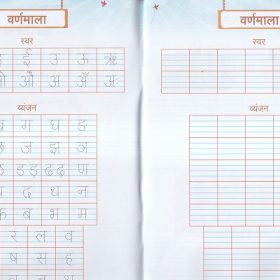 वर्णमाला
स्वर
ई उ ऊ ऋ
ओ औ अं अँ अः
व्यंजन
ख ग घ ङ
छ ज झ ञ
ठ ड ड़ ढ ढ़ ण
थ द ध न
फ ब भ म
र ल व
ष स ह
वर्णमाला
स्वर
व्यंजन